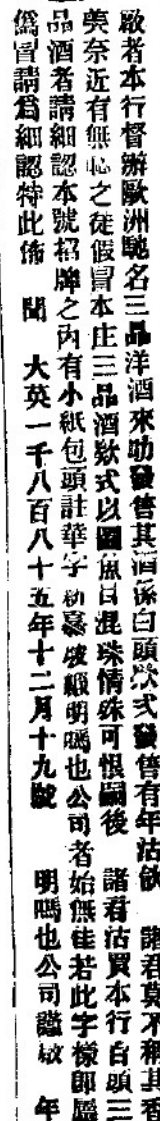 啟者本行督辦歐洲馳名三品洋酒來叻發售其酒係白頭欵式發售有年沽飲 諸君莫不稱其香
美奈近有無恥之徒假冒本庄三品酒欵式以圖魚目混珠情殊可恨嗣後 諸君沽買本行白頭三
品酒者請細認本號招牌之內有小紙包頭註華字新嘉坡緞明嗎也公司者始無悮若此字樣即屬
僞冒請爲細認特此佈 聞 大英一千八百八十五年十二月十九號 明嗎也公司謹啟 年